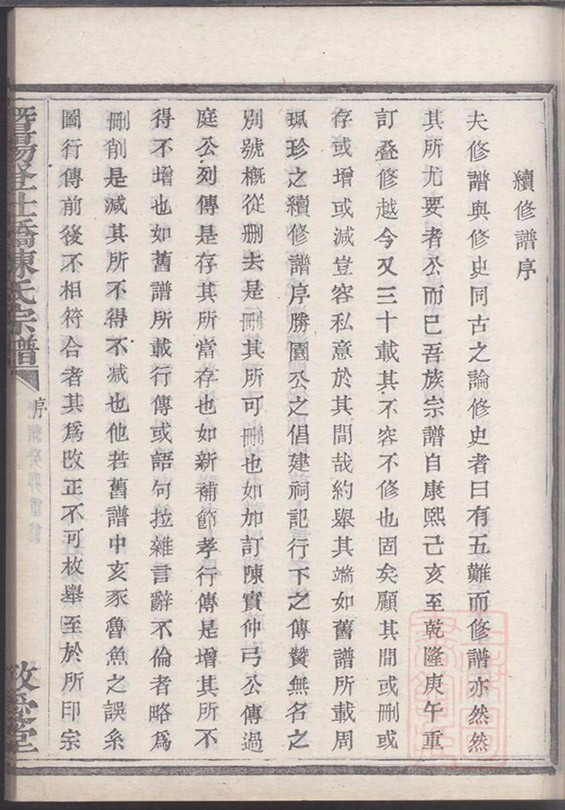 續修譜序
夫修譜與修史同古之論修史者曰有五難而修譜亦然然
其所尤要者公而已吾族宗譜自康熙己亥至乾隆庚午重
訂叠修越今又三十載其不容不修也固矣顧其間或刪或
存或增或減豈容私意於其間哉約舉其端如舊譜所載周
珮珍之續修譜序勝園公之倡建祠記行下之傳贊無名之
別號概從刪去是刪其所可刪也如加訂陳實仲弓公傳過
庭公列傳是存其所當存也如新補節孝行傳是增其所不
得不增也如舊譜所載行傳或語句拉雜言辭不倫者略為
刪削是減其所不得不減也他若舊譜中亥豕魯魚之誤系
圖行傳前後不相符合者其為改正不可枚舉至於所印宗
暨陽登仕橋陳氏宗譜
序